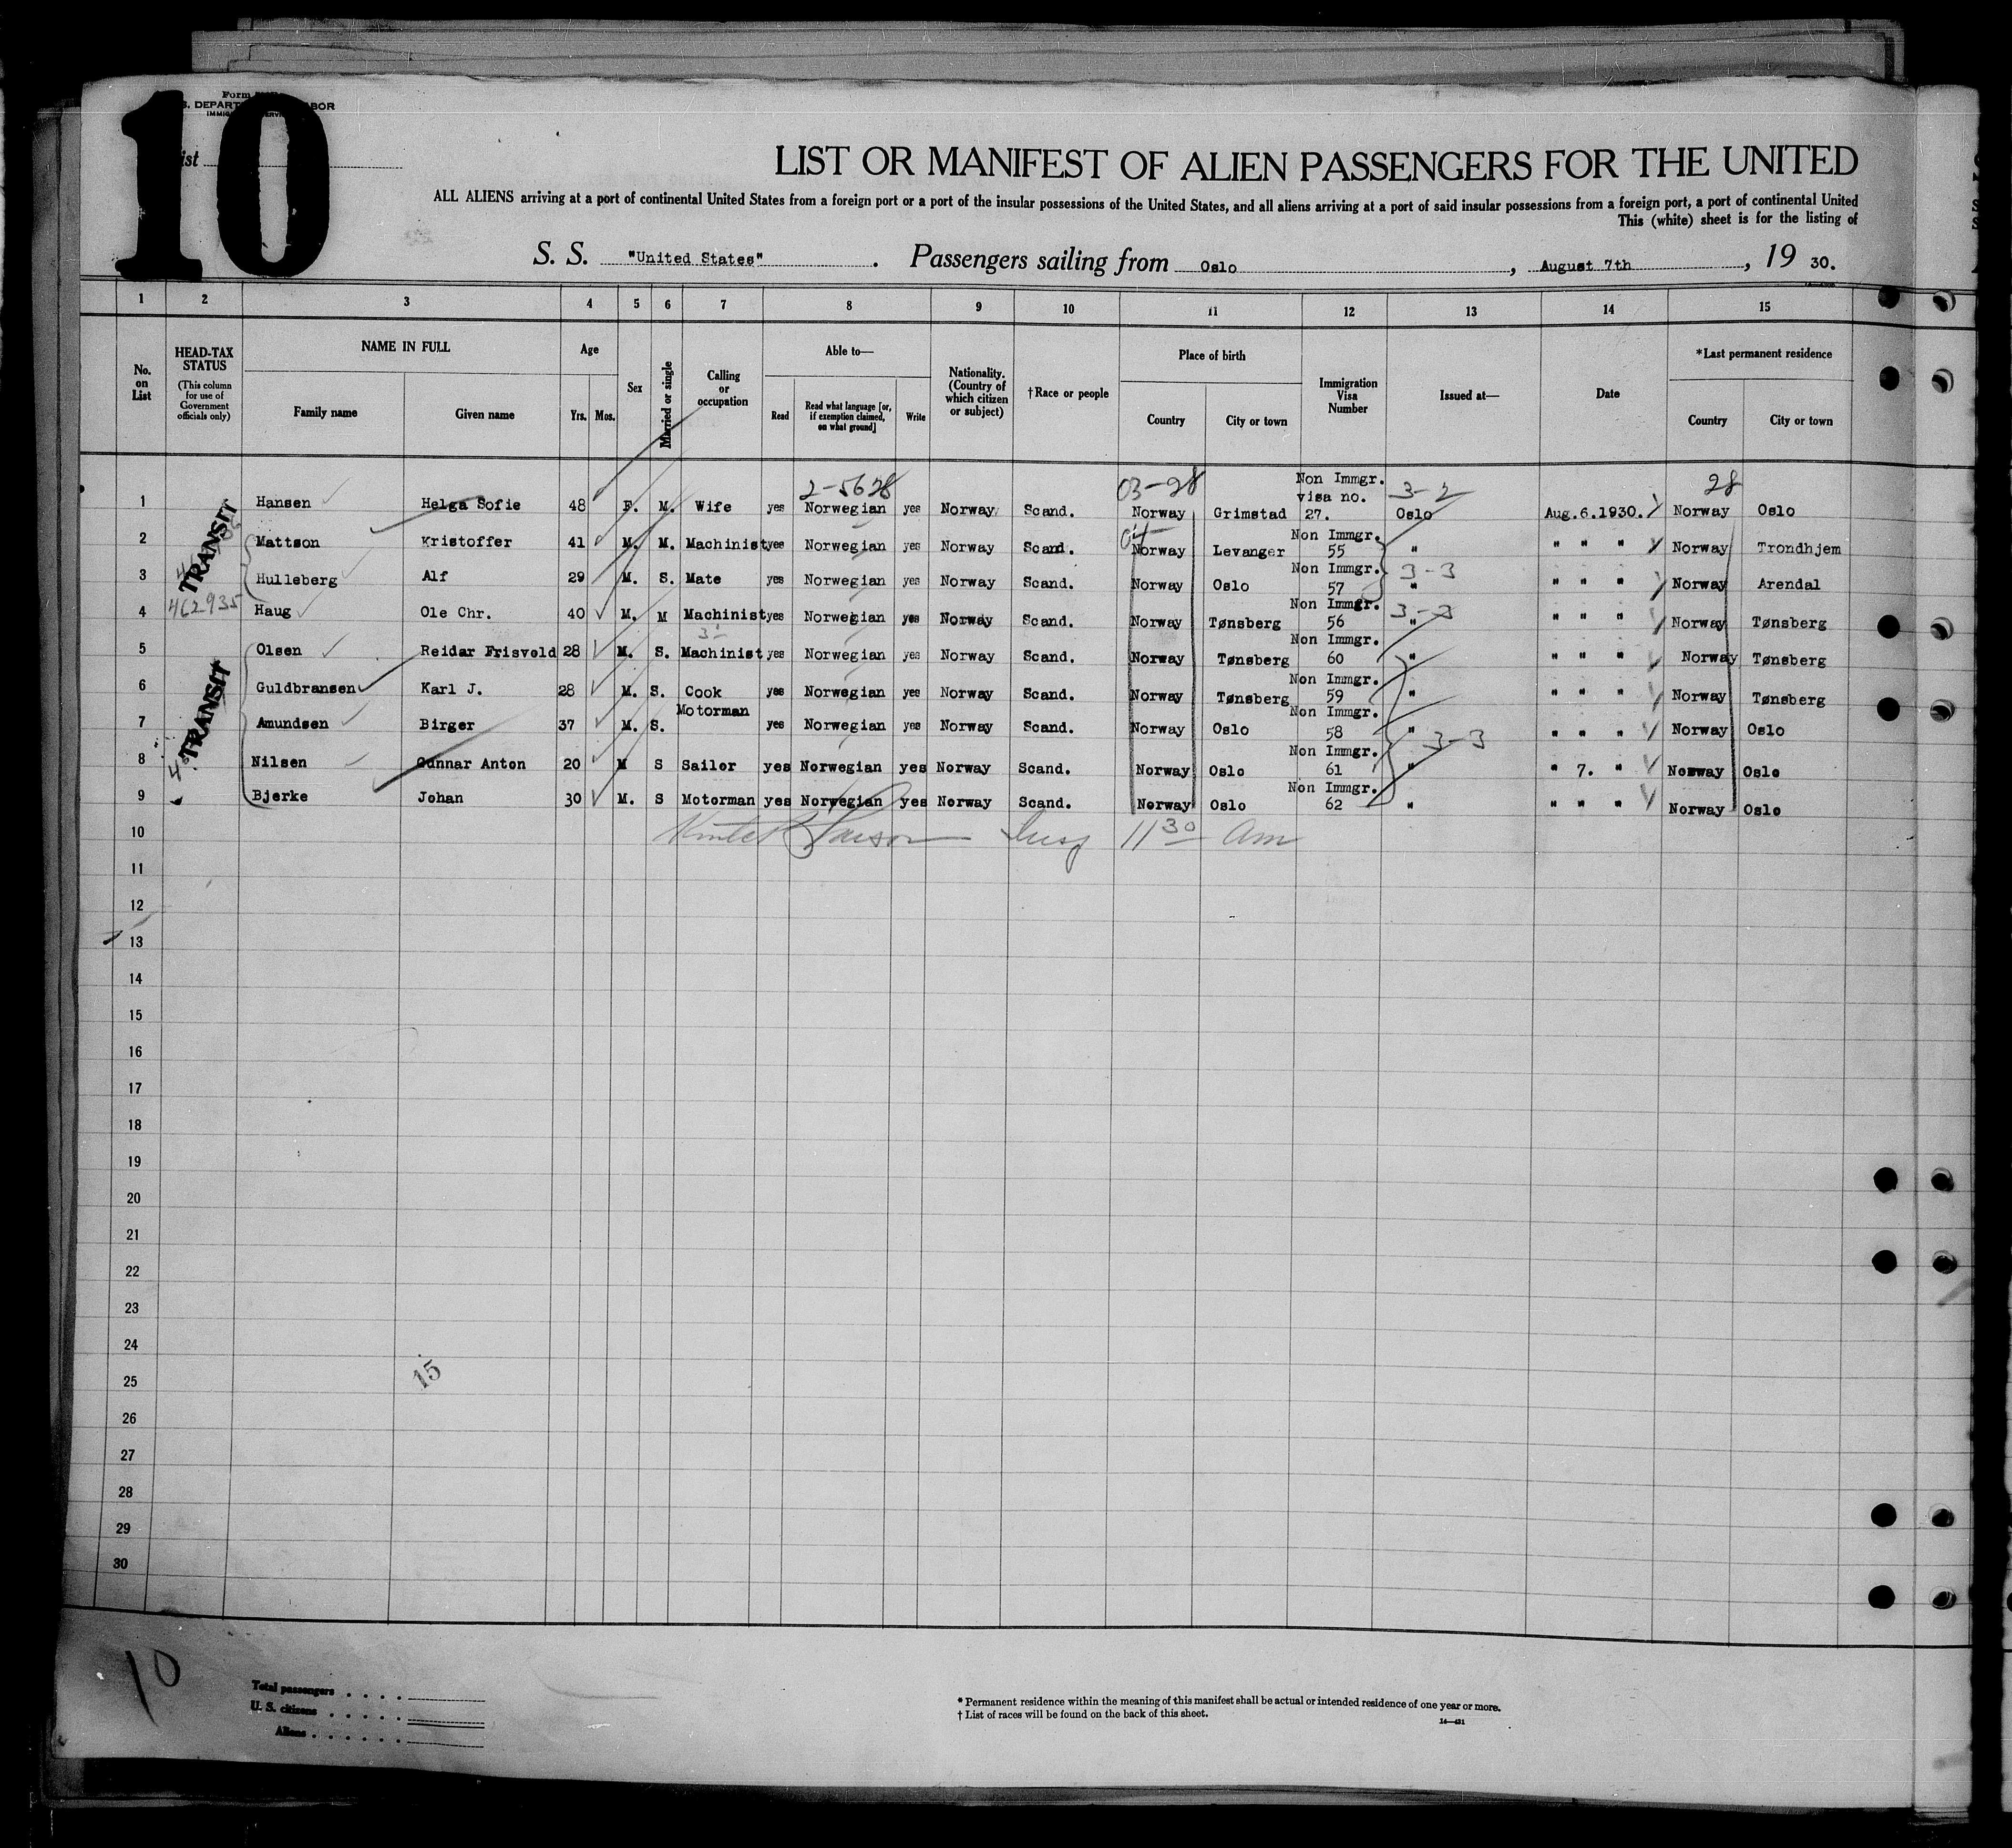 10
Form
S. DEPART BOR
IMMIG ERVI
ist
LIST OR MANIFEST OF ALIEN PASSENGERS FOR THE UNITED
ALL ALIENS arriving at a port of continental United States from a foreign port or a port of the insular possessions of the United States, and all aliens arriving at a port of said insular possessions from a foreign port, a port of continental United
This (white) sheet is for the listing of
S. S. "United States". Passengers sailing from Oslo, August 7th, 19 30.
1 2 3 4 5 6 7 8 9 10 11 12 13 14 15
No. on List
HEAD-TAX STATUS (This column for use of Government officials only)
NAME IN FULL Family name Given name
Age Yrs. Mos.
Sex
Married or single
Calling or occupation
Able to— Read Read what language [or, if exemption claimed, on what ground] Write
Nationality. (Country of which citizen or subject)
†Race or people
Place of birth Country City or town
Immigration Visa Number
Issued at—
Date
*Last permanent residence Country City or town
2-5628 03-28 Non Immgr. visa no. 3-2 28
1 Hansen Helga Sofie 48 F. M. Wife yes Norwegian yes Norway Scand. Norway Grimstad 27. Oslo Aug.6.1930. Norway Oslo
TRANSIT
04 Non Immgr.
2 Mattson Kristoffer 41 M. M. Machinist yes Norwegian yes Norway Scand. Norway Levanger 55 " " " " Norway Trondhjem
Non Immgr. 3-3
3 Hulleberg Alf 29 M. S. Mate yes Norwegian yes Norway Scand. Norway Oslo 57 " " " " Norway Arendal
462935
Non Immgr. 3-3
4 Haug Ole Chr. 40 M. M Machinist yes Norwegian yes Norway Scand. Norway Tønsberg 56 " " " " Norway Tønsberg
Non Immgr.
5 Olsen Reidar Frisvold 28 M. S. Machinist yes Norwegian yes Norway Scand. Norway Tønsberg 60 " " " " Norway Tønsberg
TRANSIT
Non Immgr.
6 Guldbransen Karl J. 28 M. S. Cook yes Norwegian yes Norway Scand. Norway Tønsberg 59 " " " " Norway Tønsberg
Motorman Non Immgr.
7 Amundsen Birger 37 M. S. yes Norwegian yes Norway Scand. Norway Oslo 58 " " " " Norway Oslo
Non Immgr. 3-3
8 Nilsen Gunnar Anton 20 M S Sailor yes Norwegian yes Norway Scand. Norway Oslo 61 " " 7. " Norway Oslo
Non Immgr.
9 Bjerke Johan 30 M. S Motorman yes Norwegian yes Norway Scand. Norway Oslo 62 " " " " Norway Oslo
10 Insp 11 30 am
11
12
13
14
15
16
17
18
19
20
21
22
23
24
25
15
26
27
28
29
30
10
Total passengers
U. S. citizens
Aliens
* Permanent residence within the meaning of this manifest shall be actual or intended residence of one year or more.
† List of races will be found on the back of this sheet.
14—421